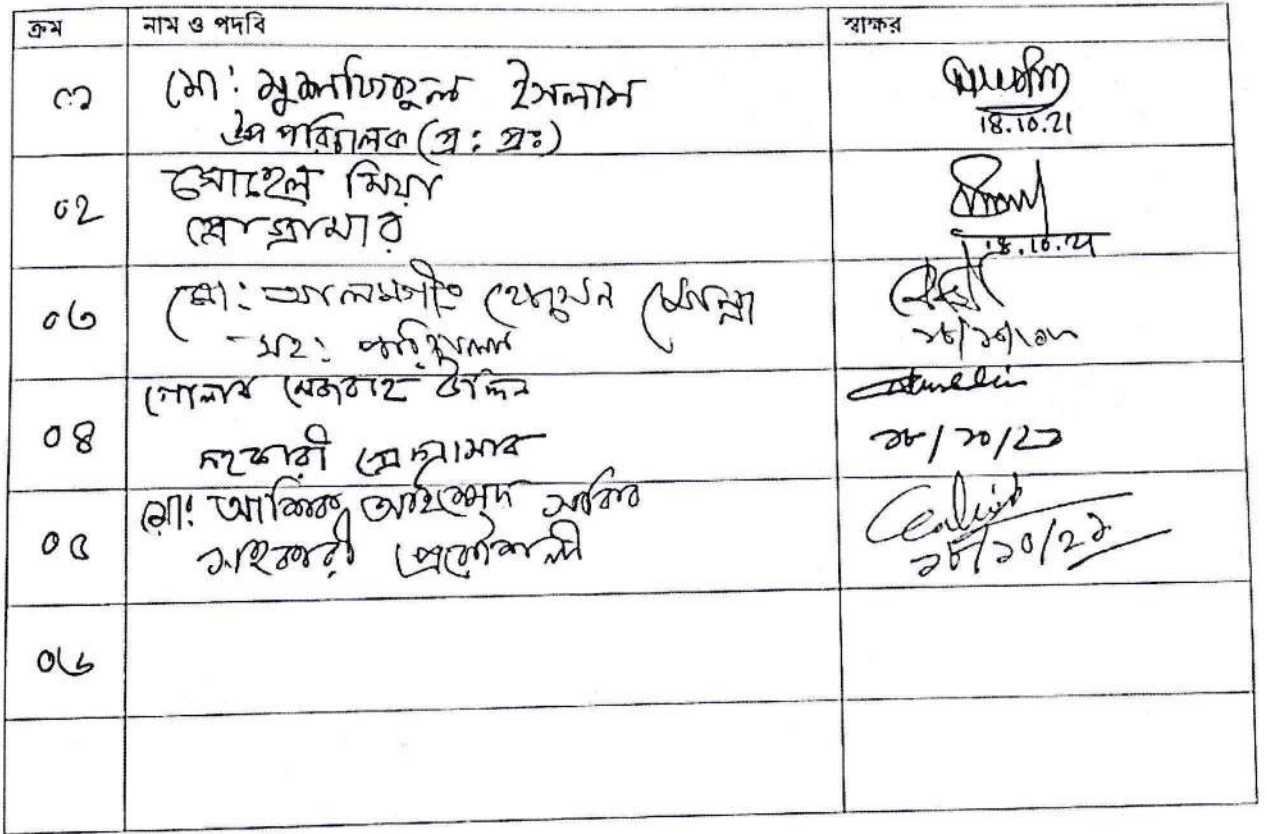 ক্রম নাম ও পদবি স্বাক্ষর
০১ মো: মুস্তাফিজুল ইসলাম
উপ পরিচালক (প্র: প্র:)
18.10.21
০২ সোহেল মিয়া
প্রোগ্রামার
18.10.21
০৩ মো: আলমগীর হোসেন মোল্লা
সহ: পরিচালক
০৪ গোলাম মেজবাহ উদ্দিন
সহকারী প্রোগ্রামার
১৮/১০/২১
০৫ মো: আশিক আহমেদ সাবিব
সহকারী প্রকৌশলী
১৮/১০/২১
০৬